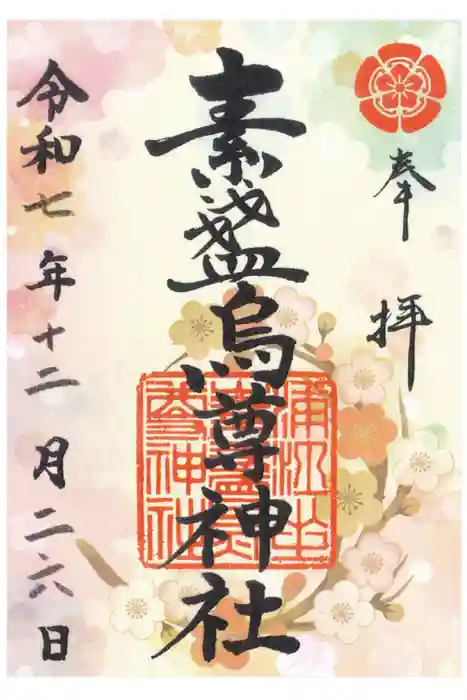 奉拝
素盞烏尊神社
浦江坐
素盞烏
尊神社
令和七年十二月二六日